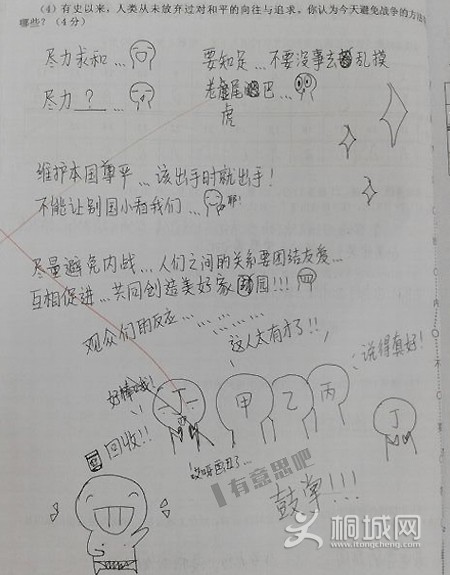 (4) 有史以来，人类从未放弃过对和平的向往与追求，你认为今天避免战争的方法有
哪些？(4分)
尽力求和…
尽力 ? …
要知足…不要没事去乱摸
老尾巴…
虎
维护本国尊平…该出手时就出手！
不能让别国小看我们…耶！
尽量避免内战…人们之间的关系要团结友爱…
互相促进…共同创造美好家园!!!
观众们的反应………
这人太有才了!!
说得真好！
好棒哦！
丁
甲
乙
丙
丁
回收!!
哎呀画丑了…
有意思吧
鼓掌!!!
桐城网
itongcheng.com